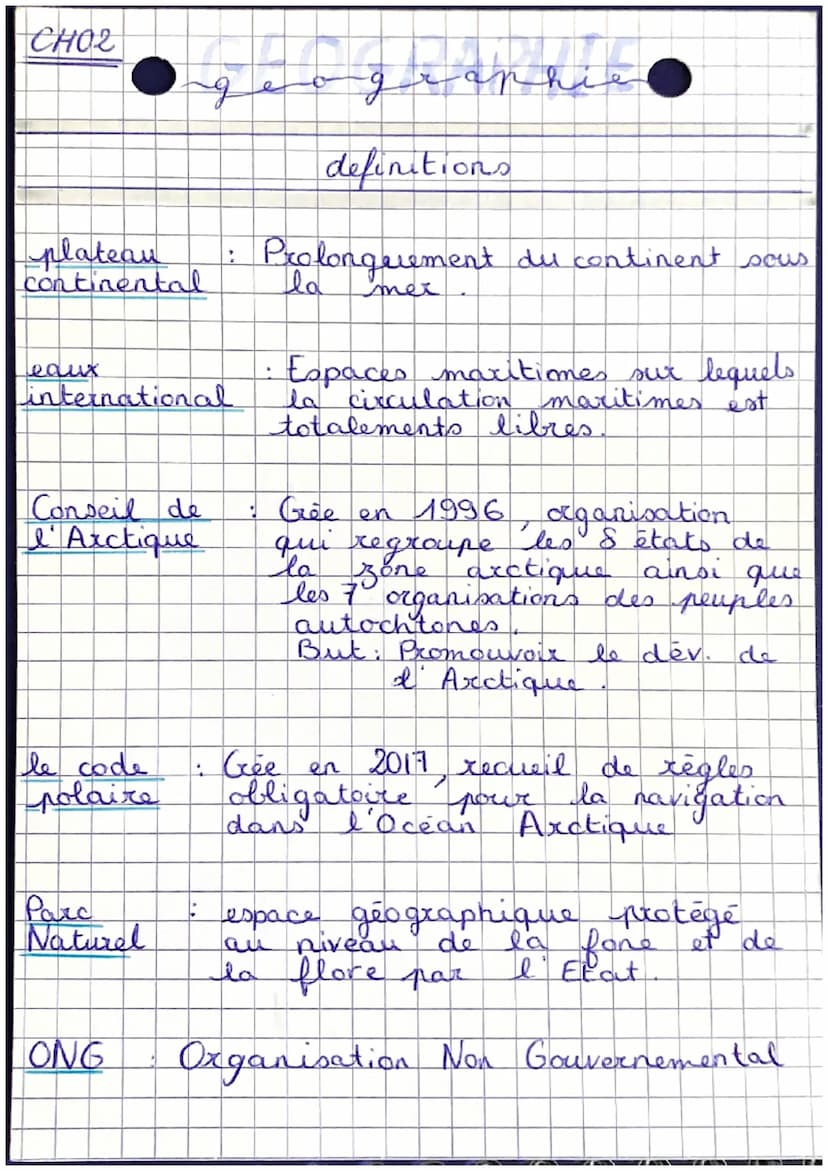 CH02
GEOGRAPHIE
geographie
definitions
plateau : Prolonguement du continent sous
continental la mer.
eaux : Espaces maritimes sur lequels
international la circulation maritimes est
totalements libres.
Conseil de : Crée en 1996, organisation
l'Arctique qui regroupe les 8 états de
la zône arctique ainsi que
les 7 organisations des peuples
autochtones.
But : Promouvoir le dév. de
l'Arctique.
le code : Crée en 2017, recueil de règles
polaire obligatoire pour la navigation
dans l'Océan Arctique
Parc : espace géographique protégé
Naturel au niveau de la fone et de
la flore par l'Etat.
ONG : Organisation Non Gouvernemental